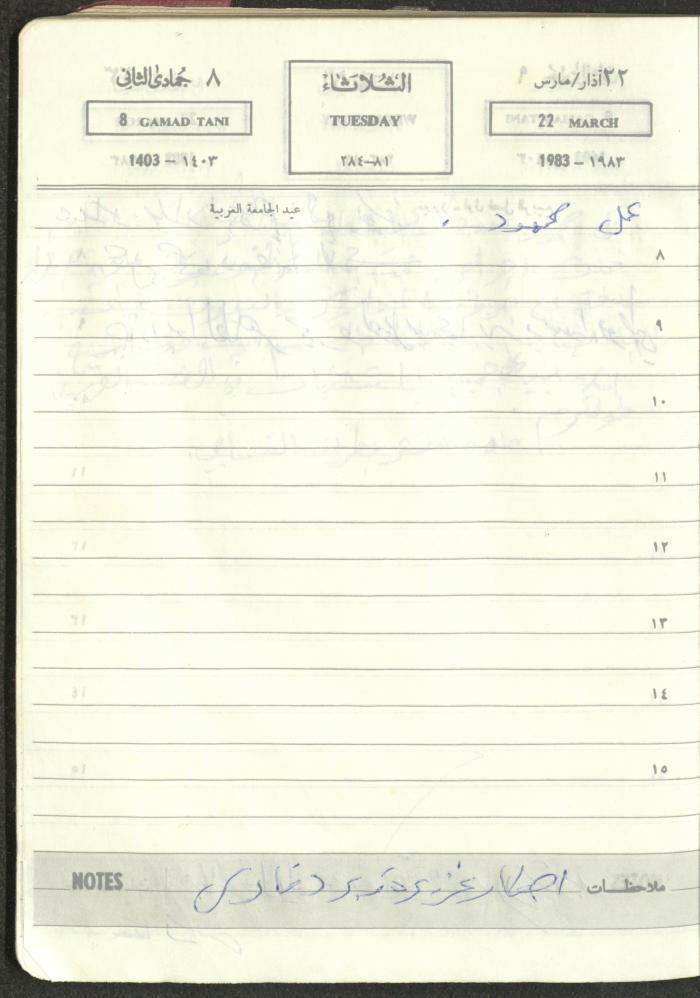 ٢٢ آذار/مارس الثلاثاء ٨ جمادى الثاني
22 MARCH TUESDAY 8 GAMAD TANI
1983 – ١٩٨٣ ٨١–٢٨٤ 1403 – ١٤٠٣
عيد الجامعة العربية
عمل محمود .
٨
٩
١٠
١١
١٢
١٣
١٤
١٥
ملاحظات امطار غزيرة وبرد NOTES